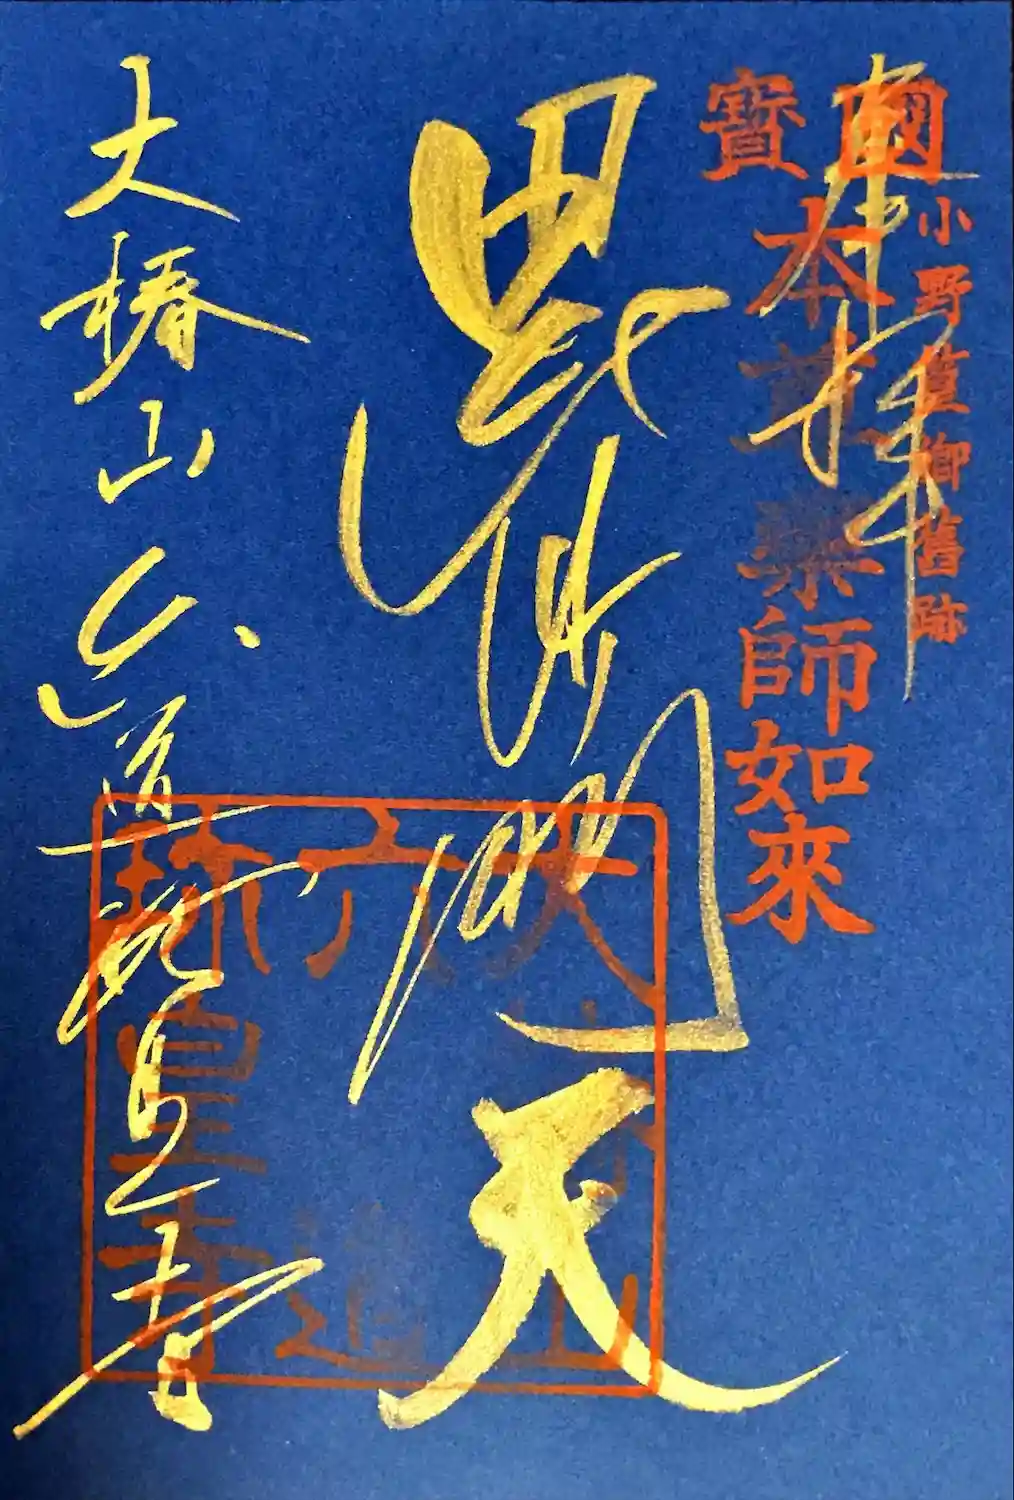 奉拝
小野篁卿舊跡
國寶
本尊藥師如來
毘沙門天
大椿山
六道
珍皇寺
大椿山六道珍皇寺